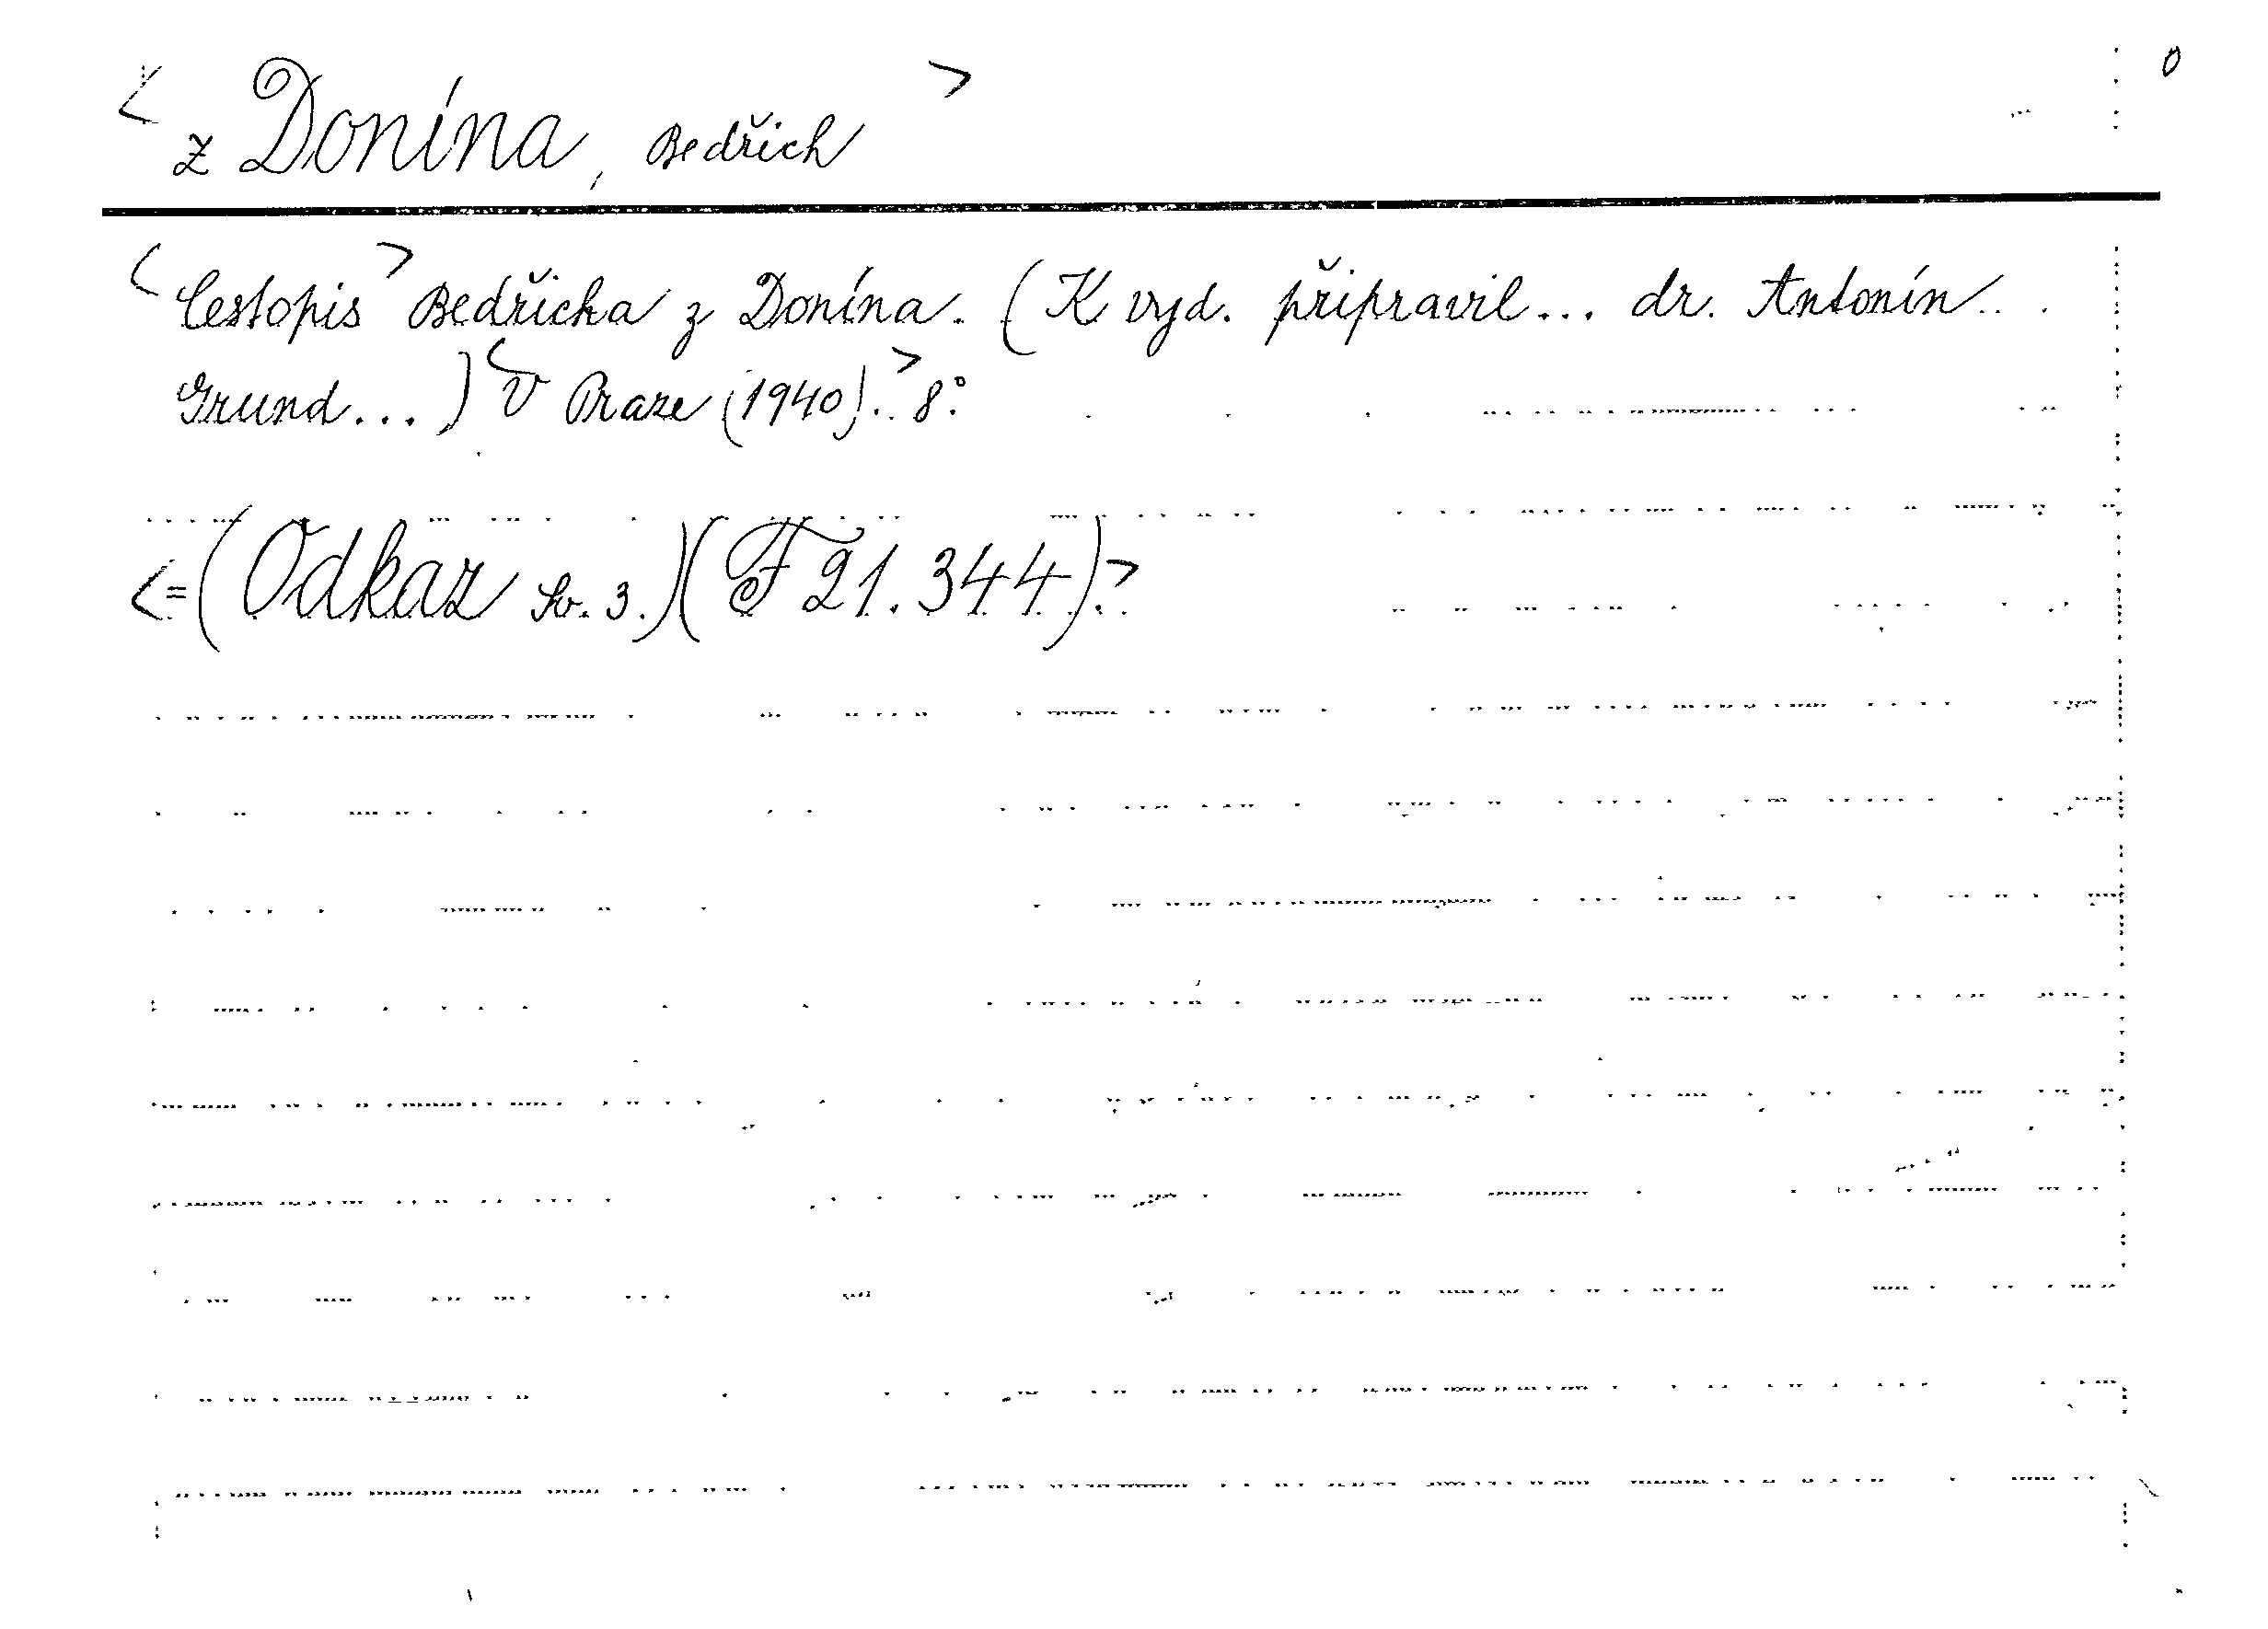 0
< z Donína, Bedřich >
< Cestopis > Bedřicha z Donína. (K vyd. připravil... dr. Antonín..
Grund...) < V Praze (1940). > 8°.
< = (Odkaz sv. 3.) (F 21.344). >